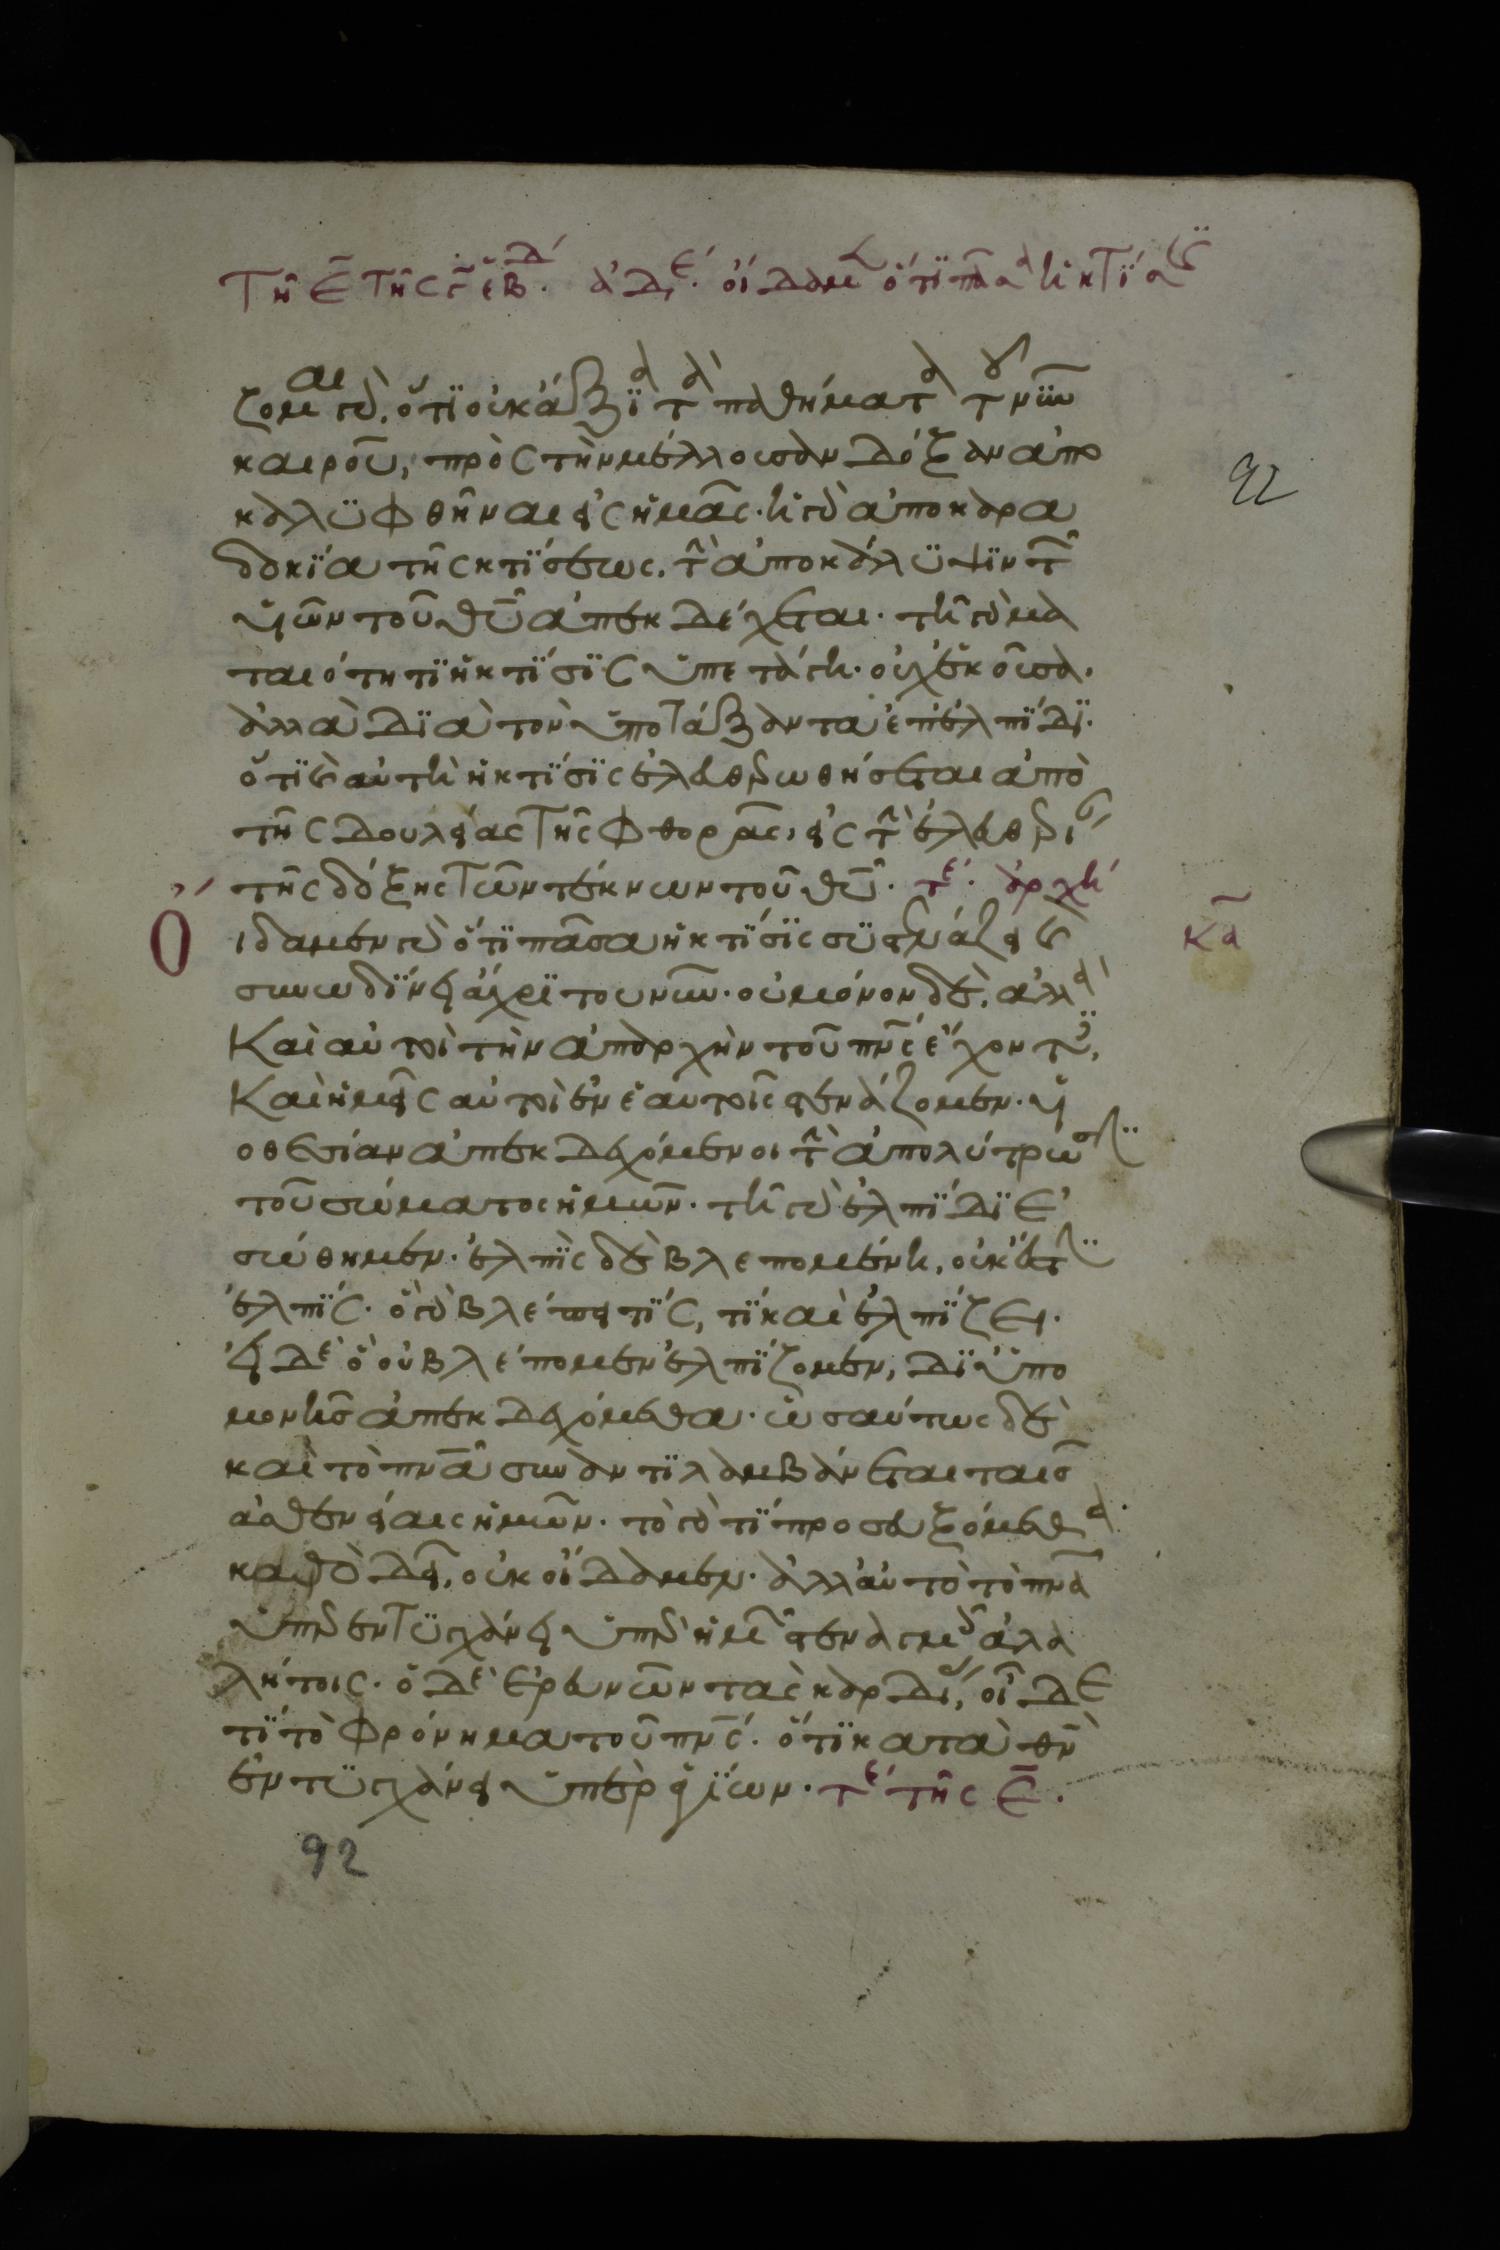 Τῆ ε̄ τῆς ς̄ ἑβδ. ἀδε. οἴδαμεν ὅτι πᾶσα ἡ κτίσις
ζομαι γὰρ, ὅτϊ οὐκ ἄξϊα τὰ παθήματα τοῦ νῦν
καιροῦ, πρὸς τὴν μέλλουσαν δόξαν ἀπο
καλϋφθῆναι εἰς ἡμᾶς. ἡ γὰρ ἀποκαρα
δοκία τῆς κτΐσεως, τὴν ἀποκάλϋψϊν τῶν
υἱῶν τοῦ θῡ ἀπεκδέχεται. τῆ γὰρ μα
ταιότητϊ ἡ κτΐσϊς ὑπετάγη. οὐχ ἑκοῦσα,
ἀλλὰ δϊὰ τὸν ὑποτάξαντα ἐπ' ἐλπΐδϊ.
ὅτϊ καὶ αὐτὴ ἡ κτΐσϊς ἐλευθερωθήσεται ἀπὸ
τῆς δουλείας τῆς φθορᾶς, εἰς τὴν ἐλευθερίαν
τῆς δόξης τῶν τέκνων τοῦ θῡ. τε. ἀρχή
Οἴδαμεν γὰρ ὅτϊ πᾶσα ἡ κτΐσϊς συστενάζει καὶ
κᾱ
συνωδΐνει ἄχρϊ του νῦν. οὐ μόνον δὲ, ἀλλὰ
Καὶ αὐτοὶ τὴν ἀπαρχὴν τοῦ πνς ἔχοντες,
Καὶ ἡμεῖς αὐτοὶ ἐν ἑαυτοῖς στενάζομεν. υἱ
οθεσίαν ἀπεκδεχόμενοι τὴν ἀπολύτρωσιν
τοῦ σώματος ἡμῶν. τῆ γὰρ ἐλπΐδϊ ἐ
σώθημεν. ἐλπὶς δὲ βλεπομένη, οὐκ ἔστιν
ἐλπΐς. ὃ γὰρ βλέπει τΐς, τΐ καὶ ἐλπΐζει.
εἰ δὲ ὃ οὐ βλέπομεν ἐλπΐζομεν, δϊ ὑπο
μονῆς ἀπεκδεχόμεθα. ὡσαύτως δὲ
καὶ τὸ πνᾱ συναντϊλαμβάνεται ταῖς
ἀσθενείαις ἡμῶν. τὸ γὰρ τΐ προσευξόμεθα
καθὸ δεῖ, οὐκ οἴδαμεν. ἀλλ' αὐτὸ τὸ πνᾱ
ὑπερεντϋγχάνει ὑπὲρ ἡμῶν στεναγμοῖς ἀλα
λήτοις. ὁ δὲ ἐρευνῶν τὰς καρδίας, οἶδε
τΐ τὸ φρόνημα τοῦ πνς. ὅτϊ κατὰ θν
ἐντϋγχάνει ὑπὲρ ἁγΐων. τε τῆς ε̄.
92
92